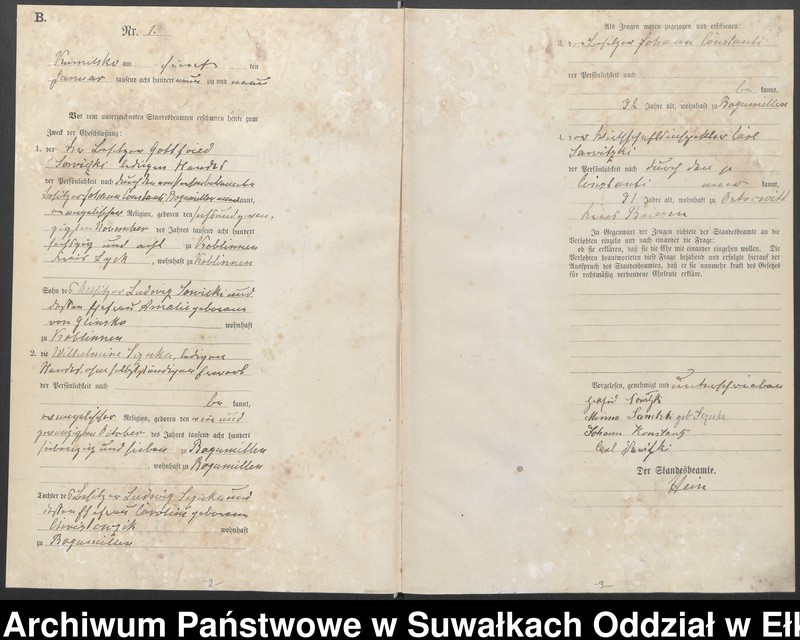 B.
Nr. 1.
Kumilsko am fünf ten
Januar tausend acht hundert zig und
Vor dem unterzeichneten Standesbeamten erschienen heute zum
Zweck der Eheschließung:
1. der Besitzer Gottfried
Sowitzki ledigen Standes
der Persönlichkeit nach durch den
Besitzer Johann Constanti Bogumillen kannt,
evangelischer Religion, geboren den sechsundzwan-
zigsten November des Jahres tausend acht hundert
sechszig und acht zu Koblinnen
Kreis Lyck, wohnhaft zu Koblinnen
Sohn des Besitzer Ludwig Sowitzki und
dessen Ehefrau Amalie geborene
von Glinska wohnhaft
zu Koblinnen
2. die Wilhelmine ledigen
Standes ohne selbstständigen Erwerb
der Persönlichkeit nach
be kannt,
evangelischer Religion, geboren den ein und
zwanzigsten October des Jahres tausend acht hundert
siebenzig und sieben zu Bogumillen
, wohnhaft zu Bogumillen
Tochter des Besitzer Ludwig und
dessen Ehefrau Caroline geborene
wohnhaft
zu Bogumillen
-2-
Als Zeugen waren zugezogen und erschienen:
3. der Besitzer Johann Constanti
der Persönlichkeit nach
be kannt,
32 Jahre alt, wohnhaft zu Bogumillen
4. der Wirthschaftsinspektor Carl
Sawitzki
der Persönlichkeit nach durch den p
Constanti aner kannt,
31 Jahre alt, wohnhaft zu
Kreis
In Gegenwart der Zeugen richtete der Standesbeamte an die
Verlobten einzeln und nach einander die Frage:
ob sie erklären, daß sie die Ehe mit einander eingehen wollen. Die
Verlobten beantworteten diese Frage bejahend und erfolgte hierauf der
Ausspruch des Standesbeamten, daß er sie nunmehr kraft des Gesetzes
für rechtmäßig verbundene Eheleute erkläre.
Vorgelesen, genehmigt und unterschrieben
Minna geb
Johann Konstanty
Carl
Der Standesbeamte.
Hein
-3-
Archiwum Państwowe w Suwałkach Oddział w Eł